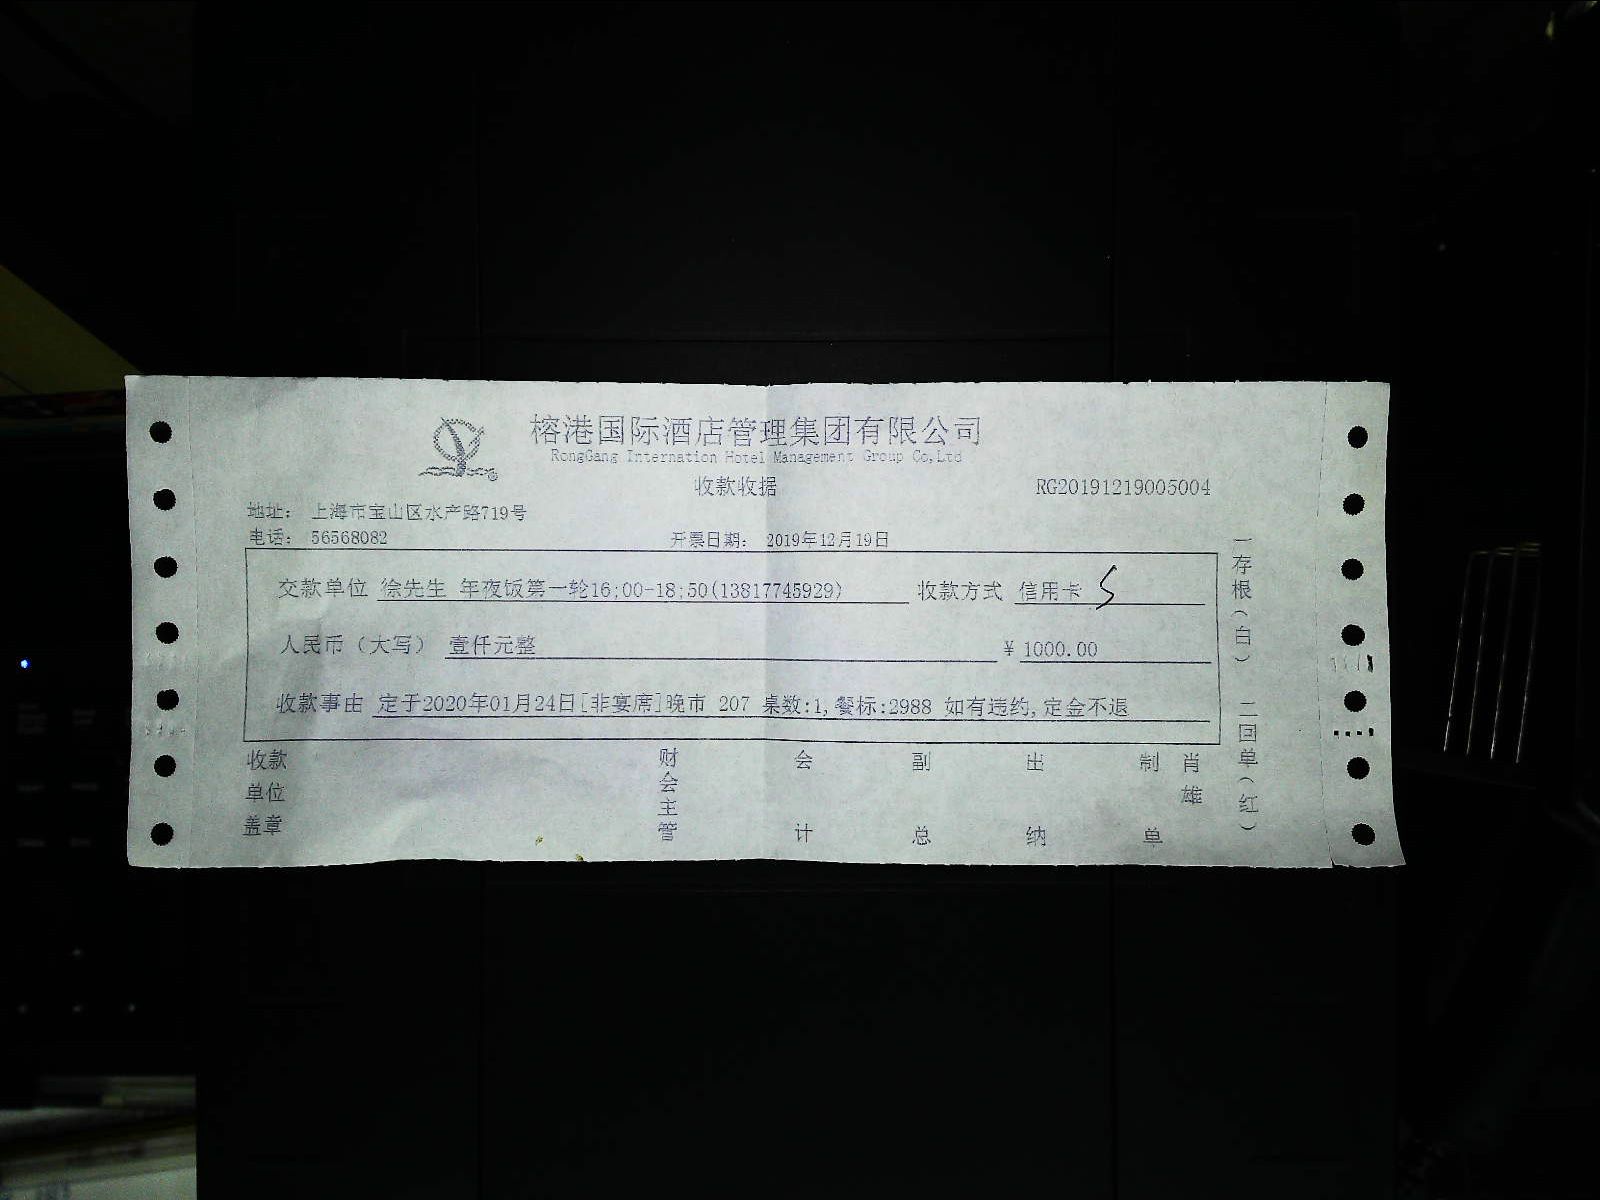 榕港国际酒店管理集团有限公司
RongGang Internation Hotel Management Group Co,Ltd
收款收据 RG20191219005004
地址： 上海市宝山区水产路719号
电话： 56568082 开票日期： 2019年12月19日
交款单位 徐先生 年夜饭第一轮16;00-18;50(13817745929) 收款方式 信用卡
人民币（大写） 壹仟元整 ¥ 1000.00
收款事由 定于2020年01月24日[非宴席]晚市 207 桌数:1,餐标:2988 如有违约,定金不退
收款单位盖章 财会主管 会计 副总 出纳 制单 肖雄
一存根（白） 二回单（红）